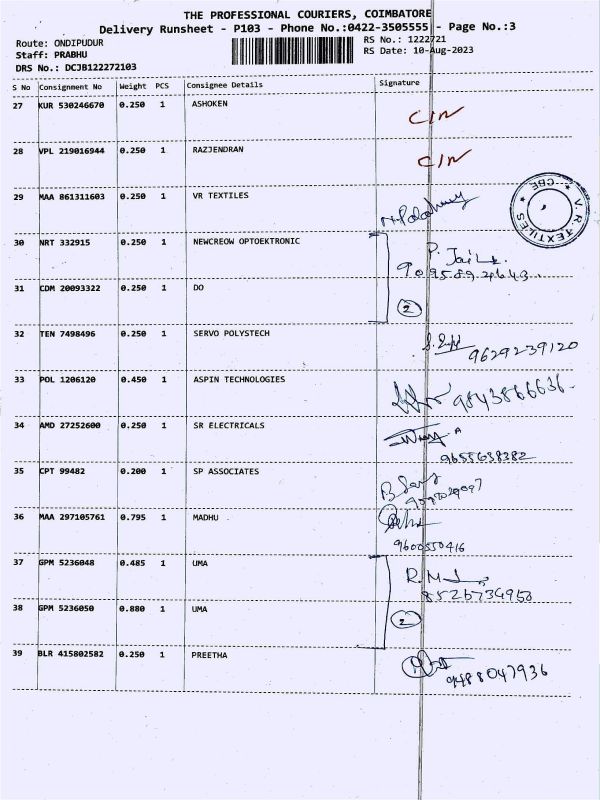 THE PROFESSIONAL COURIERS, COIMBATORE
Delivery Runsheet - P103 - Phone No.:0422-3505555 - Page No.:3
Route: ONDIPUDUR
RS No.: 1222721
Staff: PRABHU
RS Date: 10-Aug-2023
DRS No.: DCJB122272103
S No Consignment No Weight PCS Consignee Details Signature
27 KUR 530246670 0.250 1 ASHOKEN C/N
28 VPL 219016944 0.250 1 RAZJENDRAN C/N
29 MAA 861311603 0.250 1 VR TEXTILES
V.R.TEXTILES ★ CBE ★
30 NRT 332915 0.250 1 NEWCREOW OPTOEKTRONIC
9095892643
31 CDM 20093322 0.250 1 DO 2
32 TEN 7498496 0.250 1 SERVO POLYSTECH 9629239120
33 POL 1206120 0.450 1 ASPIN TECHNOLOGIES 9843866636
34 AMD 27252600 0.250 1 SR ELECTRICALS
9655638382
35 CPT 99482 0.200 1 SP ASSOCIATES
36 MAA 297105761 0.795 1 MADHU
9600550416
37 GPM 5236048 0.485 1 UMA
8526734950
38 GPM 5236050 0.880 1 UMA 2
39 BLR 415802582 0.250 1 PREETHA
9488047936